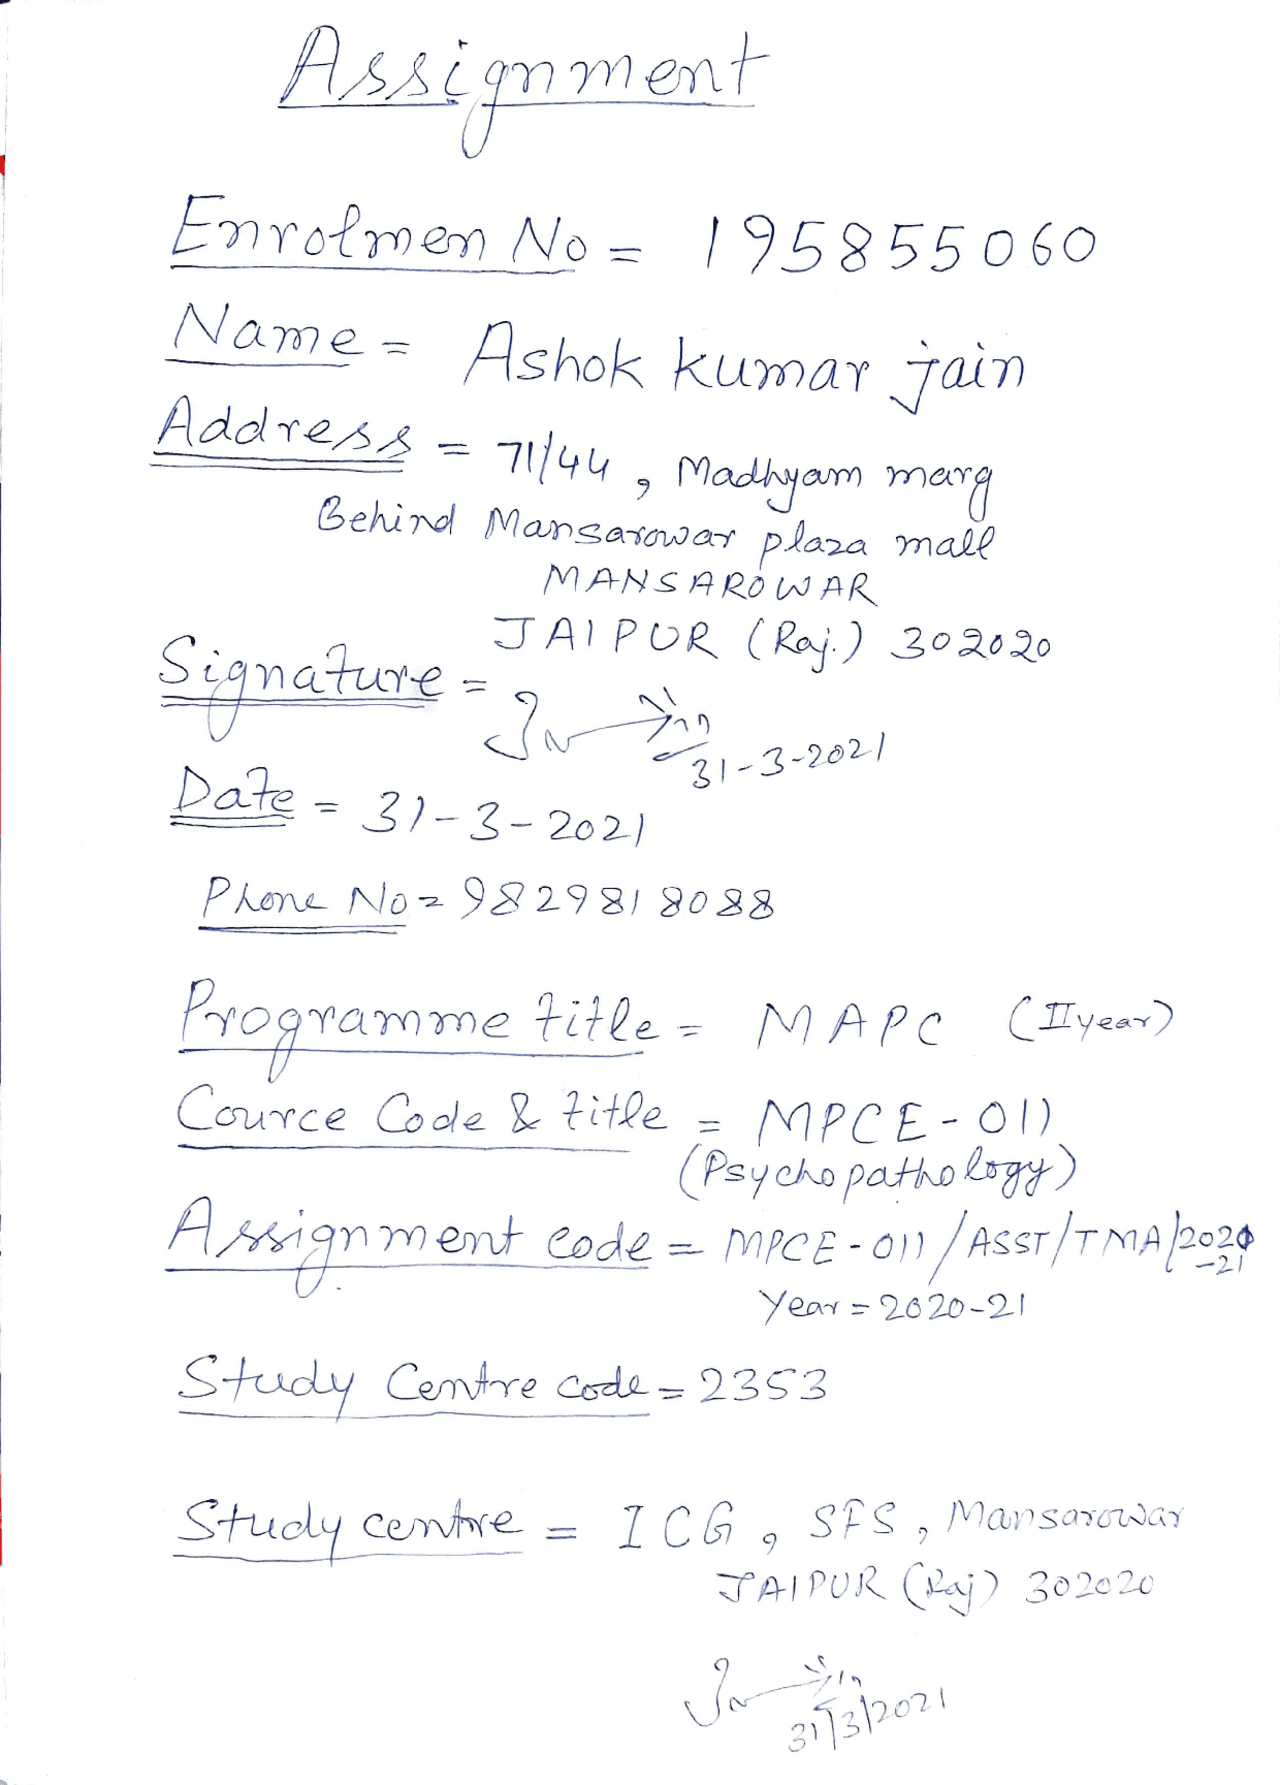 Assignment
Enrolmen No = 195855060
Name = Ashok kumar jain
Address = 71/44, Madhyam marg
Behind Mansarowar plaza mall
MANSAROWAR
JAIPUR (Raj.) 302020
Signature =
31-3-2021
Date = 31-3-2021
Phone No = 9829818088
Programme title = MAPC (II year)
Cource Code & title = MPCE-011
(Psychopathology)
Assignment code = MPCE-011/ASST/TMA/2020
-21
Year = 2020-21
Study Centre code = 2353
Study centre = ICG, SFS, Mansarowar
JAIPUR (Raj) 302020
31/3/2021